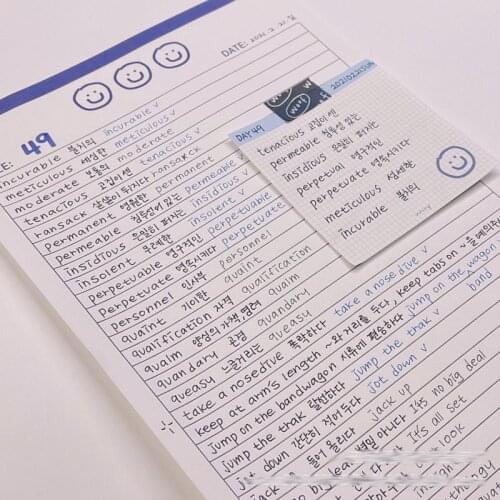 DATE: 2021. 2. 21. 일
49
incurable 불치의 incurable v
meticulous 세심한 meticulous v
moderate 보통의 moderate
tenacious 고집이 센 tenacious v
ransack 샅샅이 뒤지다 ransack
permanent 영원한 permanent
permeable 침투성 있는 permeable
insidious 은밀히 퍼지는 insidious v
insolent 무례한 insolent v
perpetuable 영구적인 perpetuable
perpetuate 영속시키다 perpetuate
personnel 인사부 personnel
quaint 기이한 quaint
qualification 자격 qualification
qualm 양심의 가책, 염려 qualm
quandary 곤경 quandary
queasy 느글거리는 queasy
take a nosedive 폭락하다 take a nose dive v
keep at arm's length ~와 거리를 두다, keep tabs on ~을
jump on the bandwagon 시류에 편승하다 jump on the wagon
band
jump the thak 탈선하다 jump the thak v
jot down 간단히 적어두다 jot down v
들어 올리다 jack up
big deal 별일 아니다 It's no big deal
It's all set
look
DAY 49
tenacious 고집이 센
permeable 침투성 있는
insidious 은밀히 퍼지는
perpetual 영구적인
perpetuate 영속시키다
meticulous 세심한
incurable 불치의